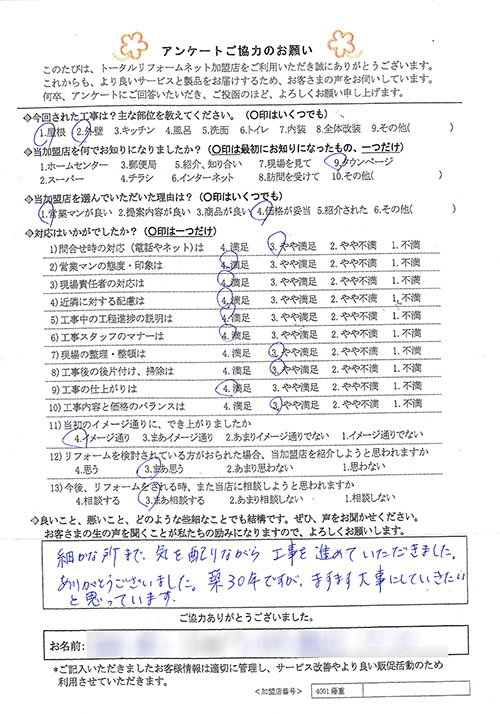 アンケートご協力のお願い
このたびは、トータルリフォームネット加盟店をご利用いただき誠にありがとうございます。
これからも、より良いサービスと製品をお届けするため、お客さまの声をお伺いしています。
何卒、アンケートにご回答いただき、ご投函のほど、よろしくお願い申し上げます。
◆今回された工事は？主な部位を教えてください。（○印はいくつでも）
1.屋根 2.外壁 3.キッチン 4.風呂 5.洗面 6.トイレ 7.内装 8.全体改装 9.その他( )
◆当加盟店を何でお知りになりましたか？（○印は最初にお知りになったもの、一つだけ）
1.ホームセンター 3.郵便局 5.紹介、知り合い 7.現場を見て 9.タウンページ
2.スーパー 4.チラシ 6.インターネット 8.訪問を受けて 10.その他( )
◆当加盟店を選んでいただいた理由は？（○印はいくつでも）
1.営業マンが良い 2.提案内容が良い 3.商品が良い 4.価格が妥当 5.紹介された 6.その他( )
◆対応はいかがでしたか？（○印は一つだけ）
1)問合せ時の対応（電話やネット)は 4.満足 3.やや満足 2.やや不満 1.不満
2)営業マンの態度・印象は 4.満足 3.やや満足 2.やや不満 1.不満
3)現場責任者の対応は 4.満足 3.やや満足 2.やや不満 1.不満
4)近隣に対する配慮は 4.満足 3.やや満足 2.やや不満 1.不満
5)工事中の工程進捗の説明は 4.満足 3.やや満足 2.やや不満 1.不満
6)工事スタッフのマナーは 4.満足 3.やや満足 2.やや不満 1.不満
7)現場の整理・整頓は 4.満足 3.やや満足 2.やや不満 1.不満
8)工事後の後片付け、掃除は 4.満足 3.やや満足 2.やや不満 1.不満
9)工事の仕上がりは 4.満足 3.やや満足 2.やや不満 1.不満
10)工事内容と価格のバランスは 4.満足 3.やや満足 2.やや不満 1.不満
11)当初のイメージ通りに、でき上がりましたか
4.イメージ通り 3.まあイメージ通り 2.あまりイメージ通りでない 1.イメージ通りでない
12)リフォームを検討されている方がおられた場合、当加盟店を紹介しようと思われますか
4.思う 3.まあ思う 2.あまり思わない 1.思わない
13)今後、リフォームをされる時、また当店に相談しようと思われますか
4.相談する 3.まあ相談する 2.あまり相談しない 1.相談しない
◆良いこと、悪いこと、どのような些細なことでも結構です。ぜひ、声をお聞かせください。
お客さまの生の声を聞くことが私たちの励みになりますので、よろしくお願いします。
細かな所まで、気を配りながら工事を進めていただきました。
ありがとうございました。築30年ですが、ますます大事にしていきたい
と思っています。
ご協力ありがとうございました。
お名前:
*ご記入いただきましたお客様情報は適切に管理し、サービス改善やより良い販促活動のため
利用させていただきます。
<加盟店番号> 4001藤重